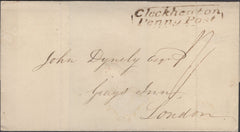 Cleckheaton
Penny Post
John Dynely Esqr
Grays Inn
London